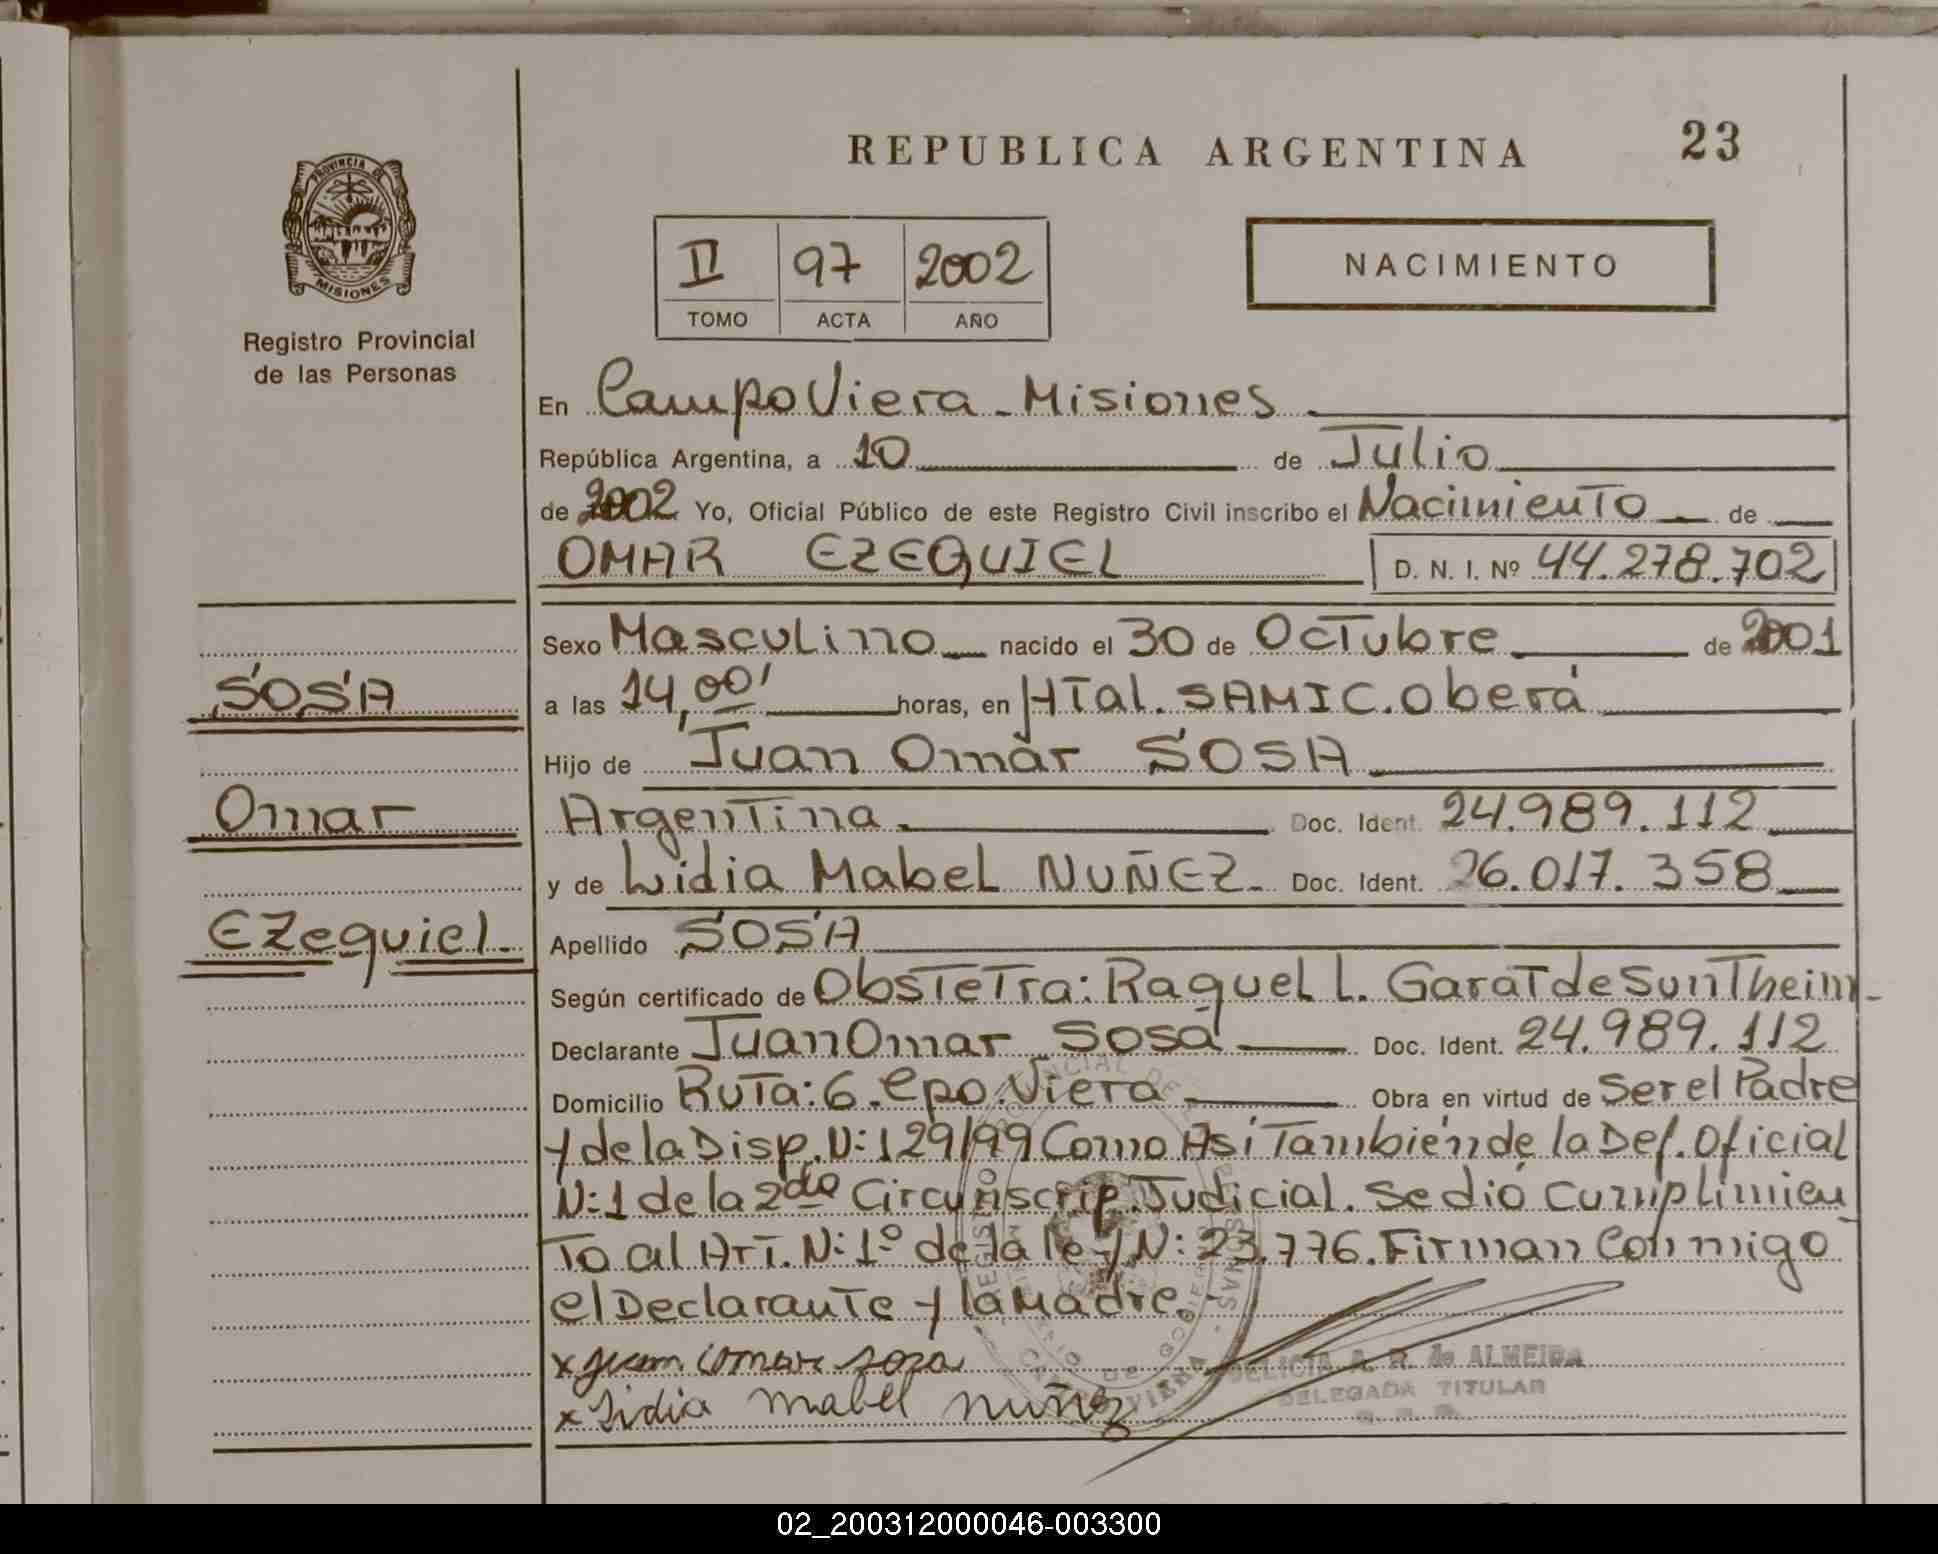 REPUBLICA ARGENTINA
23
PROVINCIA DE
MISIONES
Registro Provincial
de las Personas
II 97 2002
TOMO ACTA AÑO
NACIMIENTO
En Campo Viera - Misiones
República Argentina, a 10 de Julio
de 2002 Yo, Oficial Público de este Registro Civil inscribo el Nacimiento de
OMAR EZEQUIEL D. N. I. Nº 44.278.702
Sexo Masculino nacido el 30 de Octubre de 2001
a las 14,00' horas, en HTal. SAMIC. Oberá
Hijo de Juan Omar SOSA
Argentina Doc. Ident. 24.989.112
y de Lidia Mabel NUÑEZ Doc. Ident. 26.017.358
Apellido SOSA
Según certificado de Obstetra: Raquel L. Garat de Suntheim
Declarante Juan Omar Sosa Doc. Ident. 24.989.112
Domicilio Ruta: 6. Cpo. Viera Obra en virtud de Ser el Padre
y de la Disp. N: 129/99 Como Así También de la Def. Oficial
N: 1 de la 2da Circunscrip. Judicial. Se dió cumplimien
To al Art. N: 1º de la ley N: 23.776. Firman Conmigo
el Declarante y la Madre.
x juan omar sosa
x Lidia mabel nuñez
SOSA
Omar
Ezequiel.
DELICIA A. R. de ALMEIDA
DELEGADA TITULAR
02_200312000046-003300